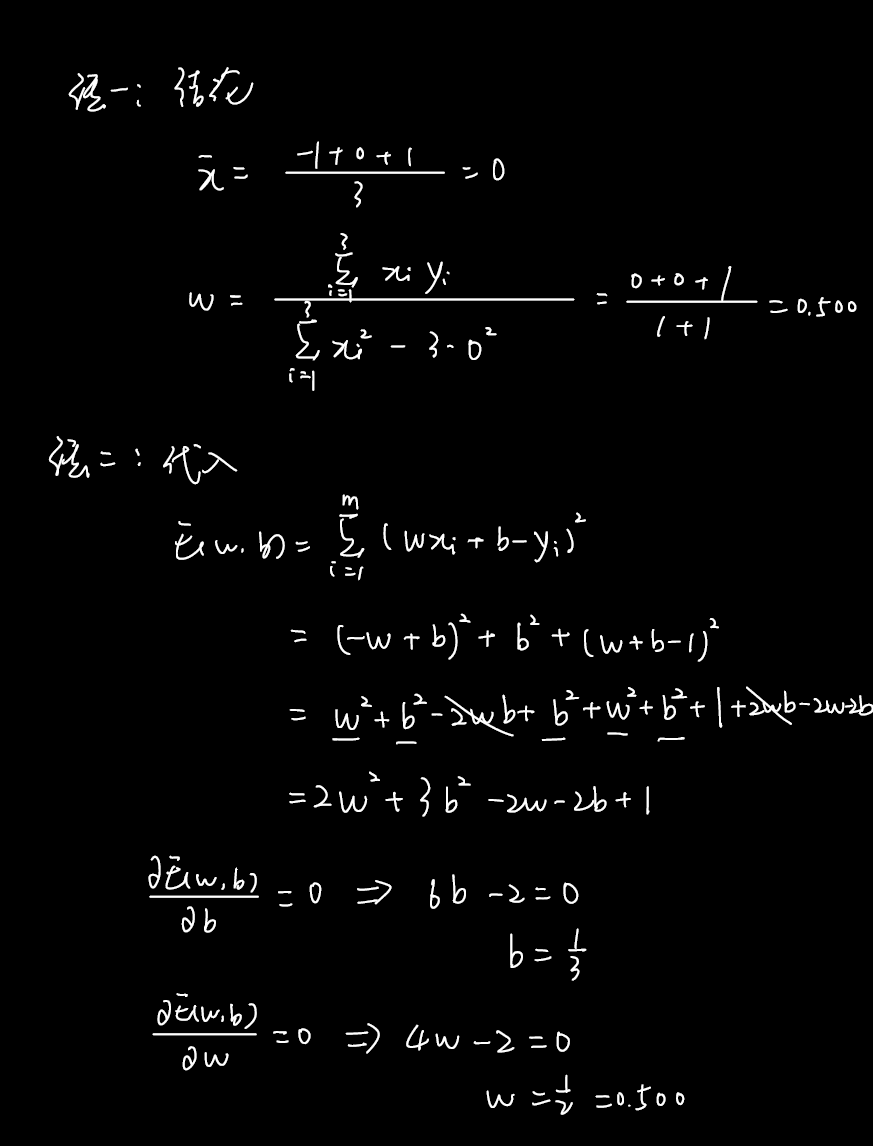 法一: 结论
x̄ = (-1+0+1)/3 = 0
w = (∑_{i=1}^{3} x_i y_i)/(∑_{i=1}^{3} x_i² - 3·0²) = (0+0+1)/(1+1) = 0.500
法二: 代入
E(w,b) = ∑_{i=1}^{m} (wx_i + b - y_i)²
= (-w+b)² + b² + (w+b-1)²
= w² + b² - 2wb + b² + w² + b² + 1 + 2wb - 2w - 2b
= 2w² + 3b² - 2w - 2b + 1
∂E(w,b)/∂b = 0 ⇒ 6b - 2 = 0
b = 1/3
∂E(w,b)/∂w = 0 ⇒ 4w - 2 = 0
w = 1/2 = 0.500